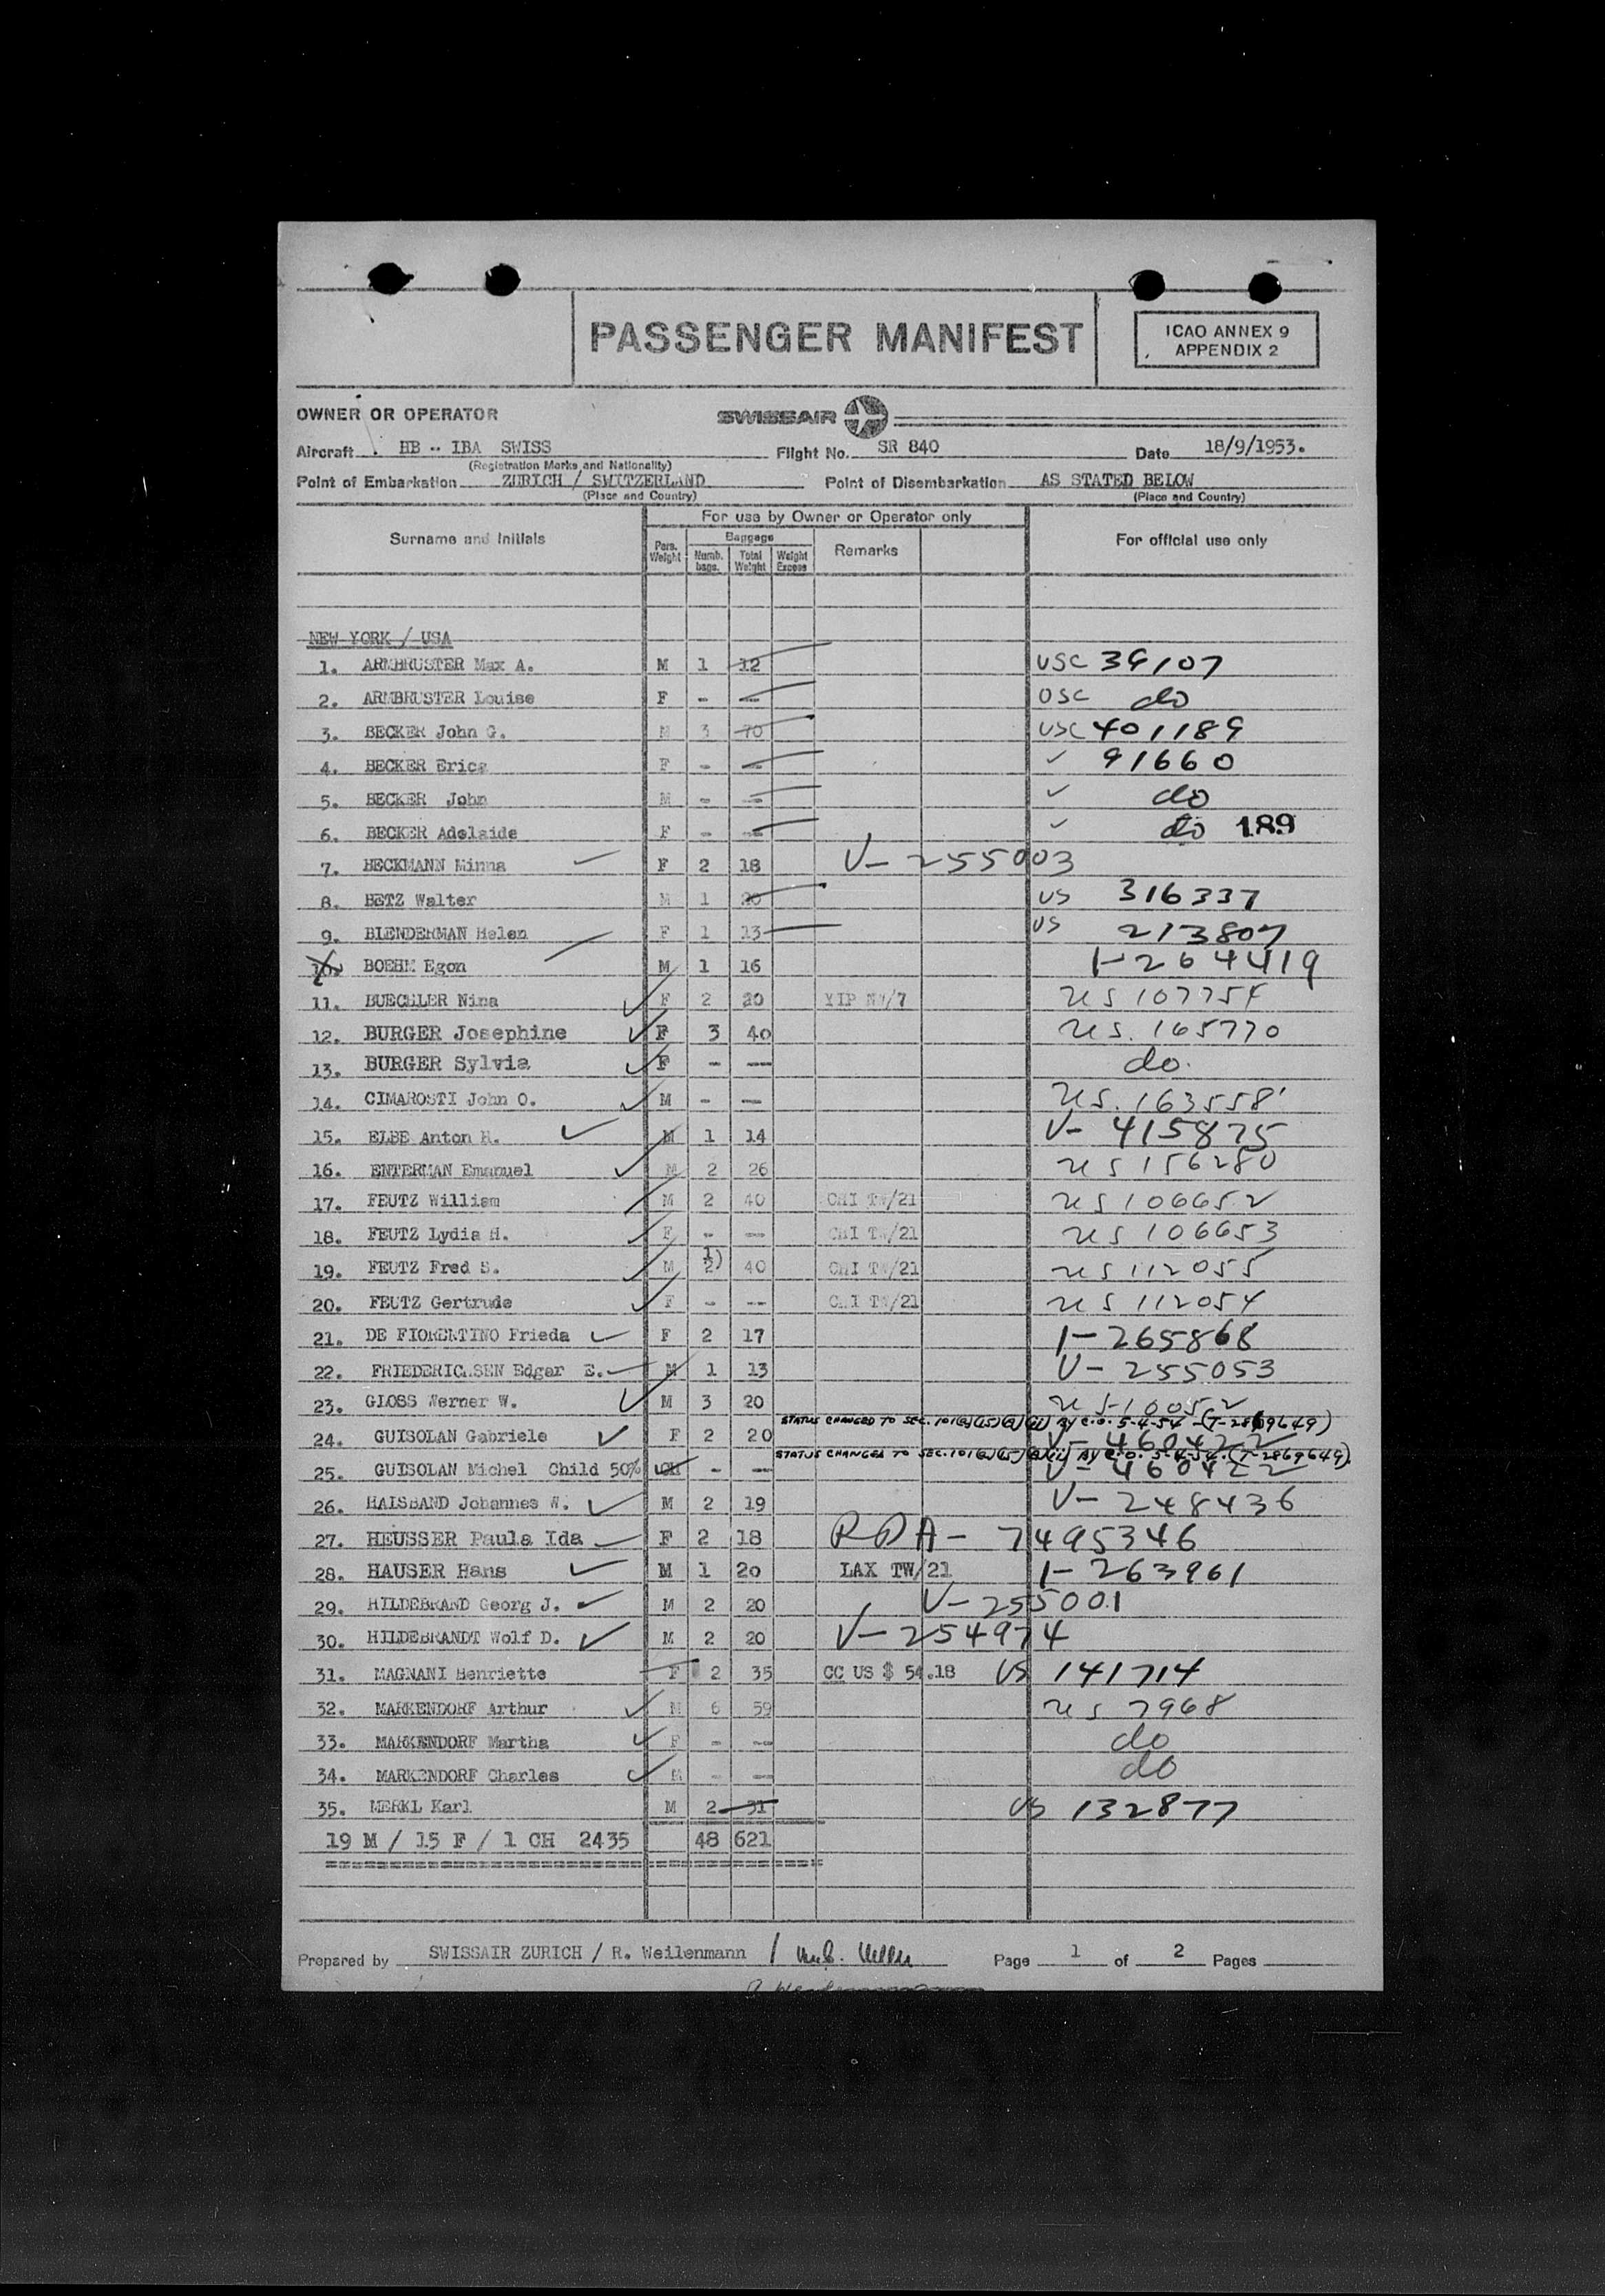 PASSENGER MANIFEST
ICAO ANNEX 9
APPENDIX 2
OWNER OR OPERATOR SWISSAIR
Aircraft HB - IBA SWISS Flight No. SR 840 Date 18/9/1953.
(Registration Marks and Nationality)
Point of Embarkation ZURICH / SWITZERLAND Point of Disembarkation AS STATED BELOW
(Place and Country) (Place and Country)
Surname and Initials For use by Owner or Operator only For official use only
Pass. Weight Baggage Numb. bags. Total Weight Weight Excess Remarks
NEW YORK / USA
1. ARMBRUSTER Max A. M 1 12 USC 39107
2. ARMBRUSTER Louise F - -- USC do
3. BECKER John G. M 3 70 USC 401189
4. BECKER Erica F - -- ✓ 91660
5. BECKER John M - -- ✓ do
6. BECKER Adelaide F - -- ✓ do 189
7. BECKMANN Minna F 2 18 V- 255003
8. BETZ Walter M 1 20 US 316337
9. BLENDERMAN Helen F 1 13 US 213807
10. BOEHM Egon M 1 16 1-264419
11. BUECHLER Nina F 2 20 YIP NW/7 US 107754
12. BURGER Josephine F 3 40 US. 165770
13. BURGER Sylvia F - -- do.
14. CIMAROSTI John O. M - -- US. 163558
15. ELBE Anton H. M 1 14 V- 415875
16. ENTERMAN Emanuel M 2 26 US 156280
17. FEUTZ William M 2 40 CHI TW/21 US 106652
18. FEUTZ Lydia H. F - -- CHI TW/21 US 106653
19. FEUTZ Fred S. M 2 1) 40 CHI TW/21 US 112055
20. FEUTZ Gertrude F - -- CHI TW/21 US 112054
21. DE FIORENTINO Frieda F 2 17 1-265868
22. FRIEDERICHSEN Edgar E. M 1 13 V- 255053
23. GLOSS Werner W. M 3 20 US-10052
STATUS CHANGED TO SEC. 101(a)(15)(G)(ii) BY C.O. 5-4-54 (T-2869649)
24. GUISOLAN Gabriele F 2 20 V- 460422
STATUS CHANGED TO SEC. 101(a)(15)(G)(ii) BY C.O. 5-4-54. (T-2869649).
25. GUISOLAN Michel Child 50% Ch - -- V- 460422
26. HALSBAND Johannes W. M 2 19 V- 248436
27. HEUSSER Paula Ida F 2 18 RDA- 7495346
28. HAUSER Hans M 1 20 LAX TW/21 1-263961
29. HILDEBRAND Georg J. M 2 20 V-255001
30. HILDEBRANDT Wolf D. M 2 20 V-254974
31. MAGNANI Henriette F 2 35 CC US $ 54.18 US 141714
32. MARKENDORF Arthur M 6 59 US 7968
33. MARKENDORF Martha F - -- do
34. MARKENDORF Charles M - -- do
35. MERKL Karl M 2 31 US 132877
19 M / 15 F / 1 CH 2435 48 621
Prepared by SWISSAIR ZURICH / R. Weilenmann / Page 1 of 2 Pages